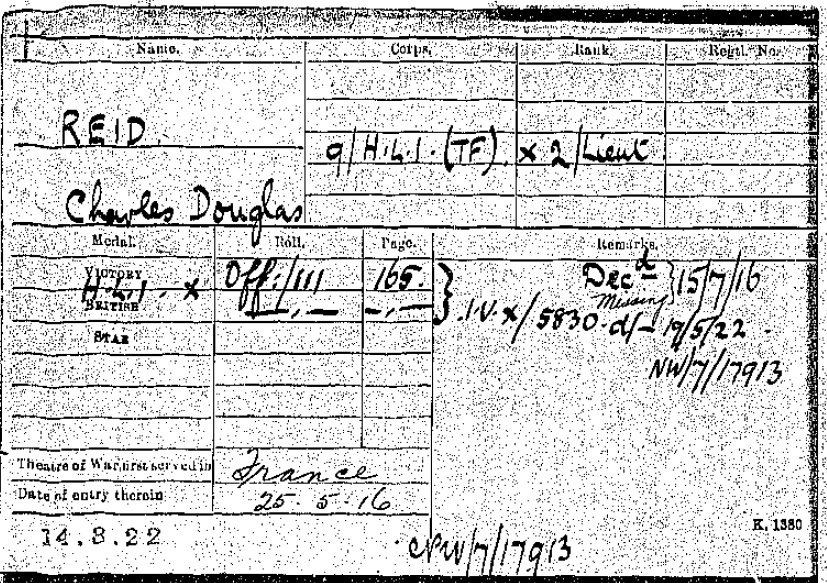 Name. Corps. Rank. Regtl. No.
REID.
9/H.L.I. (TF). x 2/Lieut
Charles Douglas
Medal. Roll. Page. Remarks.
VICTORY Off:/111 165. Decd Missing 15/7/16
H.L.I. x
BRITISH —,,— —,,— I.V.X/5830 d/- 19/5/22.
STAR
NW/7/17913
Theatre of War first served in France
Date of entry therein 25. 5. 16
14.3.22
NW/7/17913
K. 1380